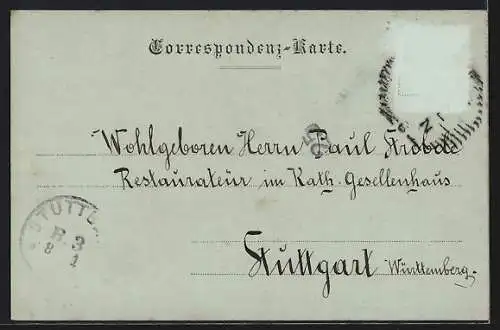 Correspondenz-Karte.
Wohlgeboren Herrn Paul
Restaurateur im Kath. Gesellenhaus
Stuttgart Württemberg.
STUTTG
B. 3
8 1